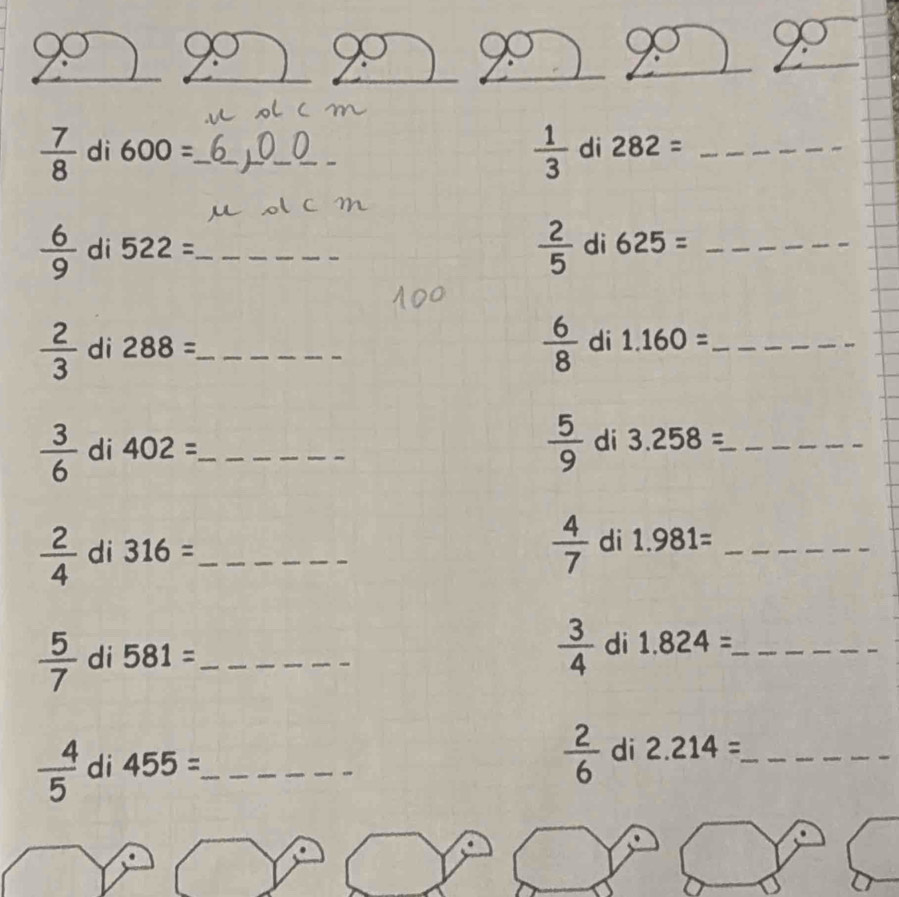 u d c m
7/8 di 600 = 6,00
1/3 di 282 = ______
u d c m
6/9 di 522 = ______
2/5 di 625 = ______
100
2/3 di 288 = ______
6/8 di 1.160 = ______
3/6 di 402 = ______
5/9 di 3.258 = ______
2/4 di 316 = ______
4/7 di 1.981= ______
5/7 di 581 = ______
3/4 di 1.824 = ______
4/5 di 455 = ______
2/6 di 2.214 = ______